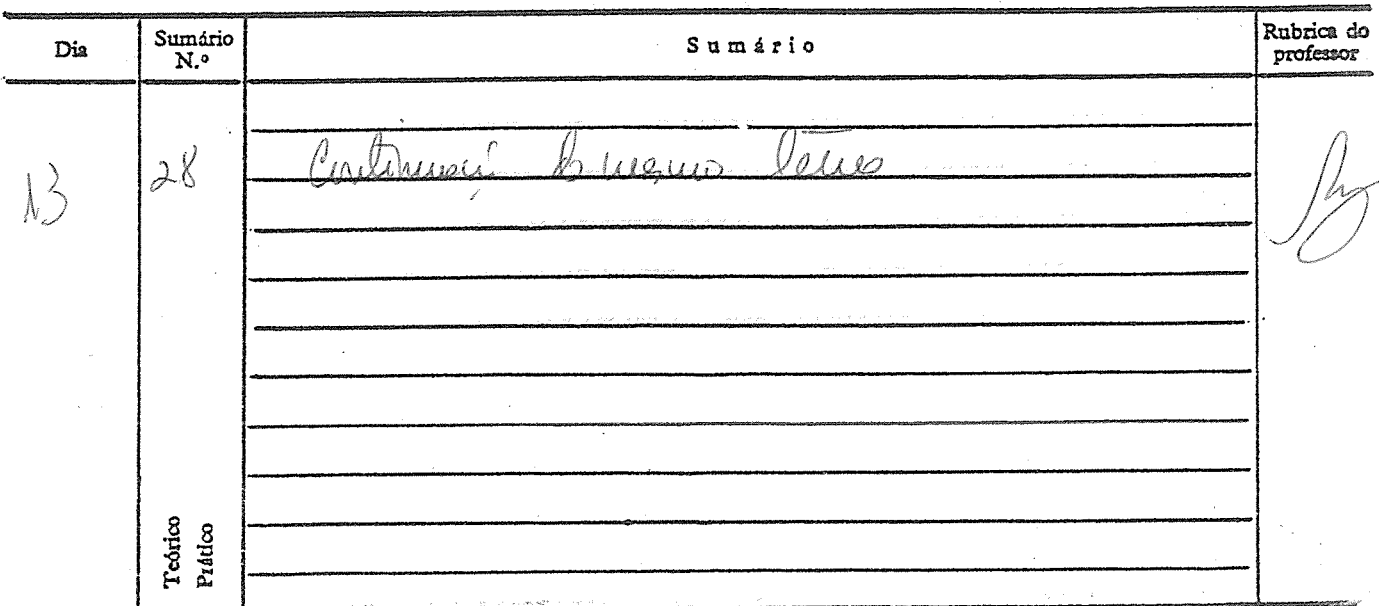 Dia
Sumário N.º
Sumário
Rubrica do professor
13
28
Continuação do mesmo tema
Teórico
Prático